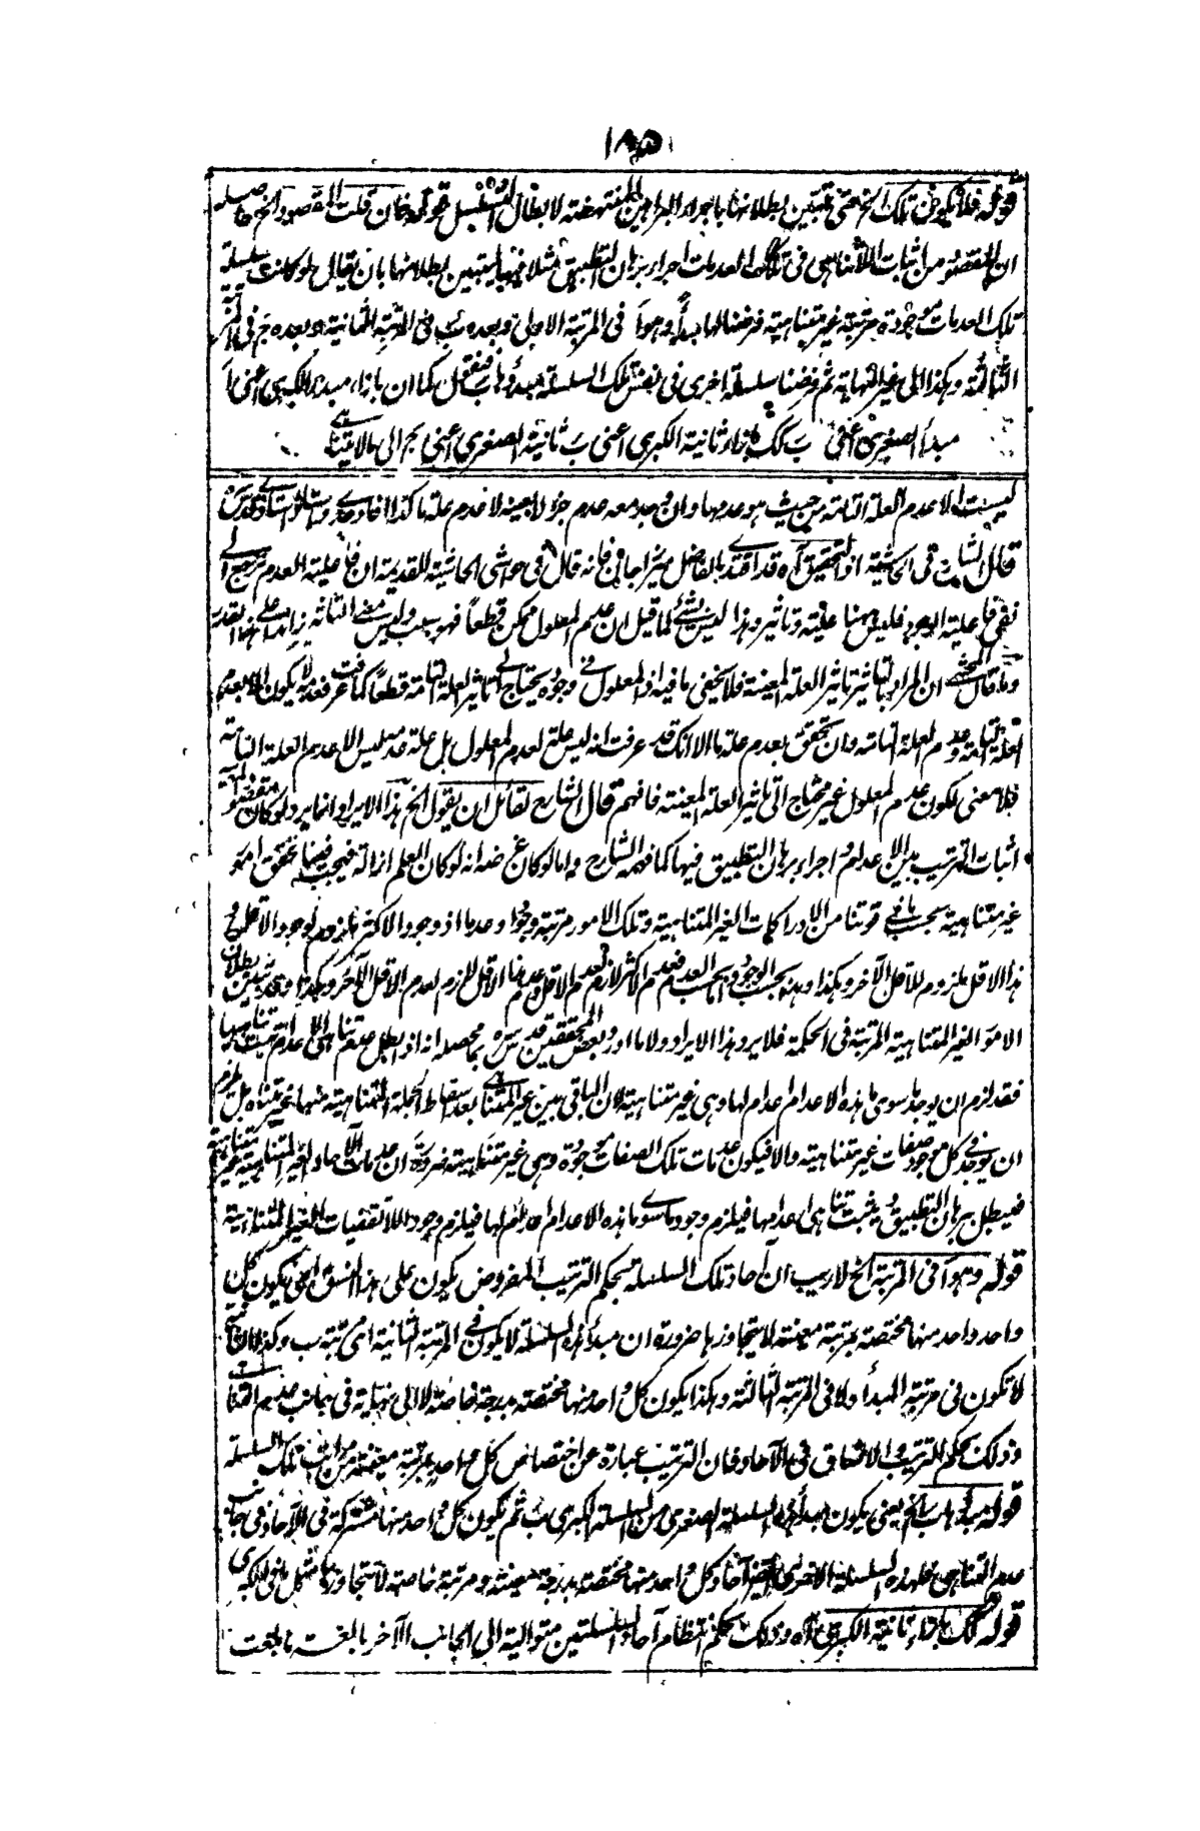 ١٨٥
قوله فلا يكون تلك الخ حتى يتبين بطلانها باجراء البراهين المنتهضة لابطال التسلسل قوله فان قلت المقصود الخ حاصله
ان المقصود من اثبات اللاتناهي في تلك العدمات اجراء برهان التطبيق مثلا فيها ليتبين بطلانها بان يقال لو كانت سلسلة
تلك العدمات موجودة مرتبة غير متناهية فرضنا لها مبدأ وهو آ في المرتبة الاولى وبعده ب في المرتبة الثانية وبعده ج في المرتبة
الثالثة وهكذا الى غير النهاية ثم فرضنا سلسلة اخرى في نفس تلك السلسلة مبدؤها ب فنقول كما ان بازاء مبدء الكبرى اعني آ
مبدأ الصغرى اعني ب كك بازاء ثانية الكبرى اعني ب ثانية الصغرى اعني ج الى مالا يتناهى
ليست الا عدم العلة التامة من حيث هو عدمها وان وجد معه عدم جزء لا بعينه لا عدم علة ما كذا افاد
قال الشارح في الحاشية اذ التحقيق آه قد اقتدى بالفاضل ميرزاجان فانه قال في حواشي الحاشية القديمة ان فاعلية العدم مرجع الى
نفي فاعلية الوجود فليس ههنا علية وتاثير وهذا ليس بشئ لما قيل ان عدم المعلول ممكن قطعاً فهو بسبب وليس معنى التاثير زائدا على هذا القدر
وما قال المحشي ان المراد بالتاثير تاثير العلة المعينة فلا يخفى ما فيه اذ المعلول في وجوده يحتاج الى تاثير العلة التامة قطعاً كما عرفت فعدمه لا يكون الا بعدم
العلة التامة وعدم العلة التامة وان تحقق بعدم علة ما الا انك قد عرفت انه ليس علة لعدم المعلول بل علة عدمه ليس الا عدم العلة التامة
فلا معنى لكون عدم المعلول غير محتاج الى تاثير العلة المعينة فافهم قال الشارح لقائل ان يقول الخ هذا الايراد انما يرد لو كان مقصوده
اثبات الترتيب بين الاعدام واجراء برهان التطبيق فيها كما فهمه الشارح واما لو كان غرضه انه لو كان العلم ازالة فيجب فينا تحقق امور
غير متناهية بحسب ما في قوتنا من الادراكات الغير المتناهية وتلك الامور مرتبة وجودا وعدما اذ وجود الاكثر ملزوم لوجود الاقل و
هذا الاقل ملزوم للاقل الآخر وهكذا وهذا بحسب الوجود واما بحسب العدم فعدم الاكثر لازم لعدم الاقل وعدم هذا الاقل لازم لعدم الاقل الآخر وهكذا وقد تبين بطلان
الامور الغير المتناهية المرتبة في الحكمة فلا يرد هذا الايراد ولا ما اورد بعض المحققين قدس سره بما محصله انه اذا بطل عدم تناهي الاعدام ثبت تناهيها
فقد لزم ان يوجد ما سوى هذه الاعدام اعدام لها وهي غير متناهية لان الباقي بين غير المتناهي بعد اسقاط الجملة المتناهية منها غير متناه بل يلزم
ان يوجد في كل موجود صفات غير متناهية والا فيكون عدمات تلك الصفات موجودة وهي غير متناهية ضرورة ان عدمات الآحاد الغير المتناهية غير متناهية
فيبطل ببرهان التطبيق ويثبت تناهي اعدامها فيلزم وجود ما سوى هذه الاعدام اعدام لها فيلزم وجود اللاتقفيات الغير المتناهية
قوله وهو آ في المرتبة الخ لا ريب ان آحاد تلك السلسلة بحكم الترتيب المفروض يكون على هذا النسق اعني يكون كل
واحد واحد منها مختصة بمرتبة معينة لا يتجاوزها ضرورة ان مبدأ هذه السلسلة لا يكون في المرتبة الثانية اي مرتبة ب وكذا الثانية
لا تكون في مرتبة المبدأ ولا في المرتبة الثالثة وهكذا يكون كل واحد منها مختصة بدرجة خاصة لا الى نهاية في جانب عدم التناهي
وذلك بحكم الترتيب والاتساق في الآحاد فان الترتيب عبارة عن اختصاص كل واحد بمرتبة معينة من مراتب تلك السلسلة
قوله مبدؤها ب الخ يعني يكون مبدأ هذه السلسلة الصغرى من السلسلة الكبرى ب ثم يكون كل واحد منها مشتركة في الآحاد في جانب
عدم التناهي فلهذه السلسلة الاخرى ايضا آحاد كل واحد منها مختصة بدرجة معينة ومرتبة خاصة لا تتجاوزها مثل ما في الكبرى
قوله كك بازاء ثانية الكبرى آه وذلك بحكم انتظام آحاد السلسلتين متوالية الى الجانب الآخر بالغة ما بلغت